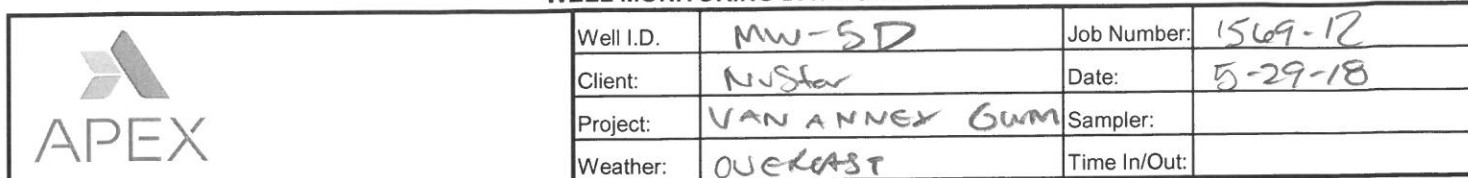 Well I.D. MW-5D Job Number: 1569-12
Client: NuStar Date: 5-29-18
APEX
Project: VAN ANNEX GWM Sampler:
Weather: OVERCAST Time In/Out: